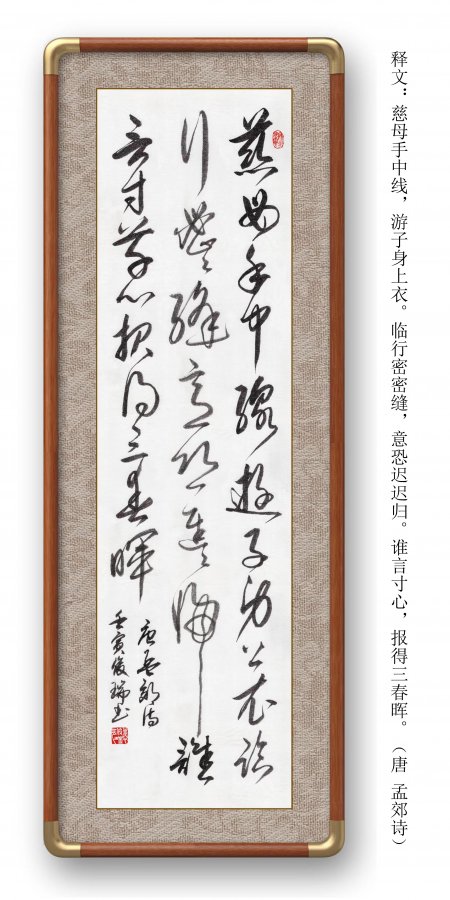 释文：慈母手中线，游子身上衣。临行密密缝，意恐迟迟归。谁言寸心，报得三春晖。（唐 孟郊诗）
慈母手中線遊子身上衣臨
行密々縫意恐遲々歸誰
言寸草心报得三春暉
唐孟郊诗
壬寅俊瑞书